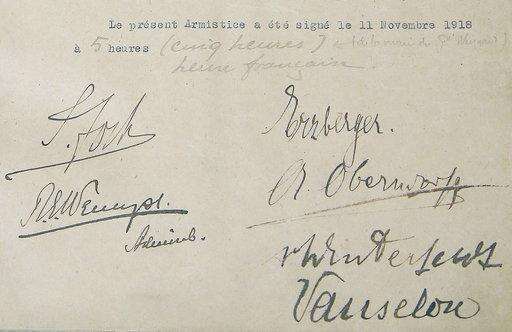 Le présent Armistice a été signé le 11 Novembre 1918
à 5 heures (cinq heures)
heure française
F. Foch
Erzberger.
R.E. Wemyss.
A. Oberndorff
Admiral.
v Winterfeldt
Vanselow